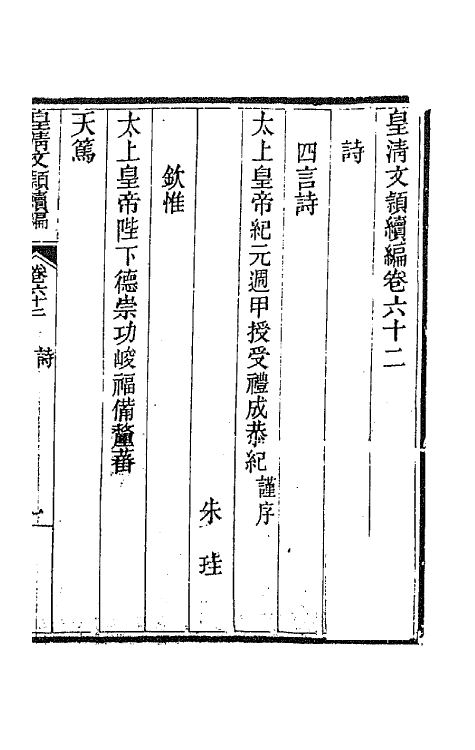 皇淸文頴續編卷六十二
詩
四言詩
太上皇帝紀元週甲授受禮成恭紀謹序
朱珪
欽惟
太上皇帝陛下德崇功峻福備釐蕃
天篤
皇淸文頴續編 卷六十二 詩 一